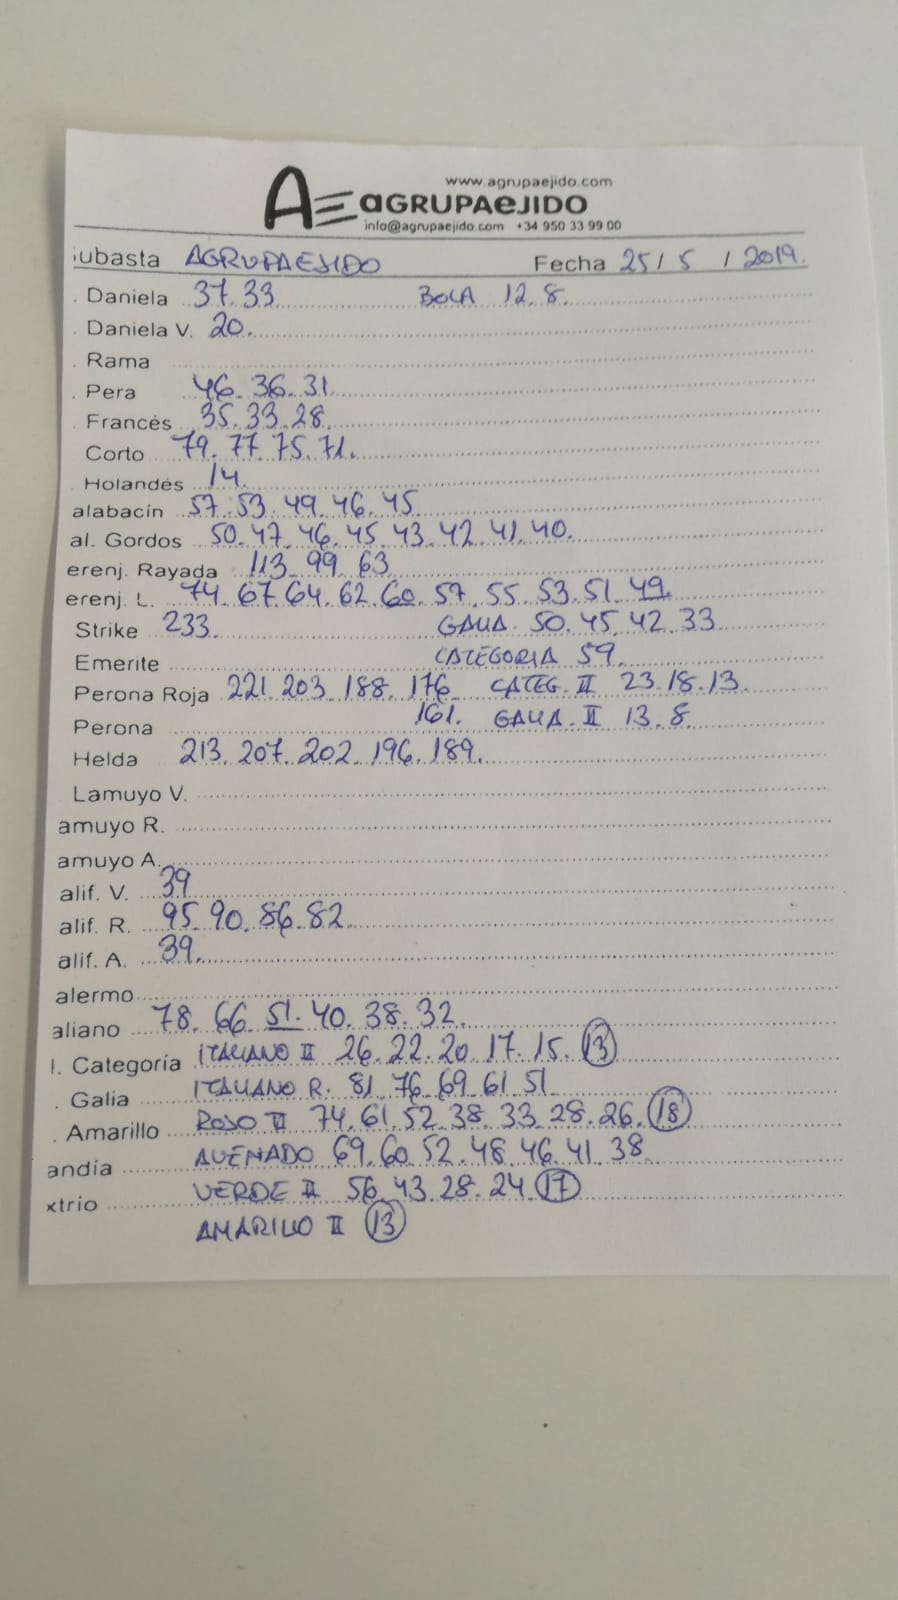 www.agrupaejido.com
AE aGRUPAeJIDO
info@agrupaejido.com +34 950 33 99 00
ubasta AGRUPAEJIDO Fecha 25/5/2019.
. Daniela 37.33. BOLA 12.8.
. Daniela V. 20.
. Rama
. Pera 46.36.31.
. Francés 35.33.28.
Corto 79.77.75.71.
Holandés 14.
alabacín 57.53.49.46.45
al. Gordos 50.47.46.45.43.42.41.40.
erenj. Rayada 113.99.63
erenj. L. 74.67.64.62.60.57.55.53.51.49.
Strike 233. GALIA. 50.45.42.33
Emerite CATEGORIA 59.
Perona Roja 221.203.188.176 CATEG. II 23.18.13.
Perona 161. GALIA. II 13.8.
Helda 213.207.202.196.189.
Lamuyo V.
amuyo R.
amuyo A.
alif. V. 39
alif. R. 95.90.86.82
alif. A. 39.
alermo
aliano 78.66.51.40.38.32.
l. Categoría ITALIANO II 26.22.20.17.15.13
. Galia ITALIANO R. 81.76.69.61.51
. Amarillo ROJO II 74.61.52.38.33.28.26.18
andía AVENADO 69.60.52.48.46.41.38.
xtrio VERDE II 56.43.28.24.17
AMARILLO II 13